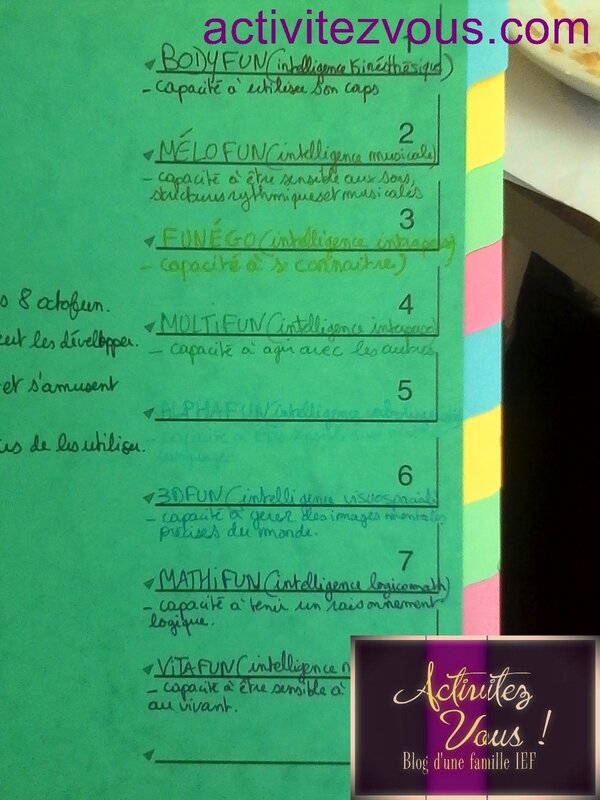 activitezvous.com
1
BODYFUN (intelligence Kinéthésique)
- capacité à utiliser son caps
2
MÉLOFUN (intelligence musicale)
- capacité à être sensible aux sons,
structures rythmiques et musicales
3
FUNÉGO (intelligence intraper
- capacité à se connaitre)
s 8 octofun.
4
MULTIFUN (intelligence interperso
eut les développer.
- capacité à agir avec les autres
et s'amusent
5
ALPHAFUN (intelligence
- capacité à être sensible aux
language.
us de les utiliser.
6
3DFUN (intelligence visuospaciale
- capacité à gerer des images mentales
précises du monde.
7
MATHiFUN (intelligence logicomath)
- capacité à tenir un raisonnement
logique.
ViTAFUN (intelligence n
- capacité à être sensible à
au vivant.
Activitez
Vous !
Blog d'une famille IEF